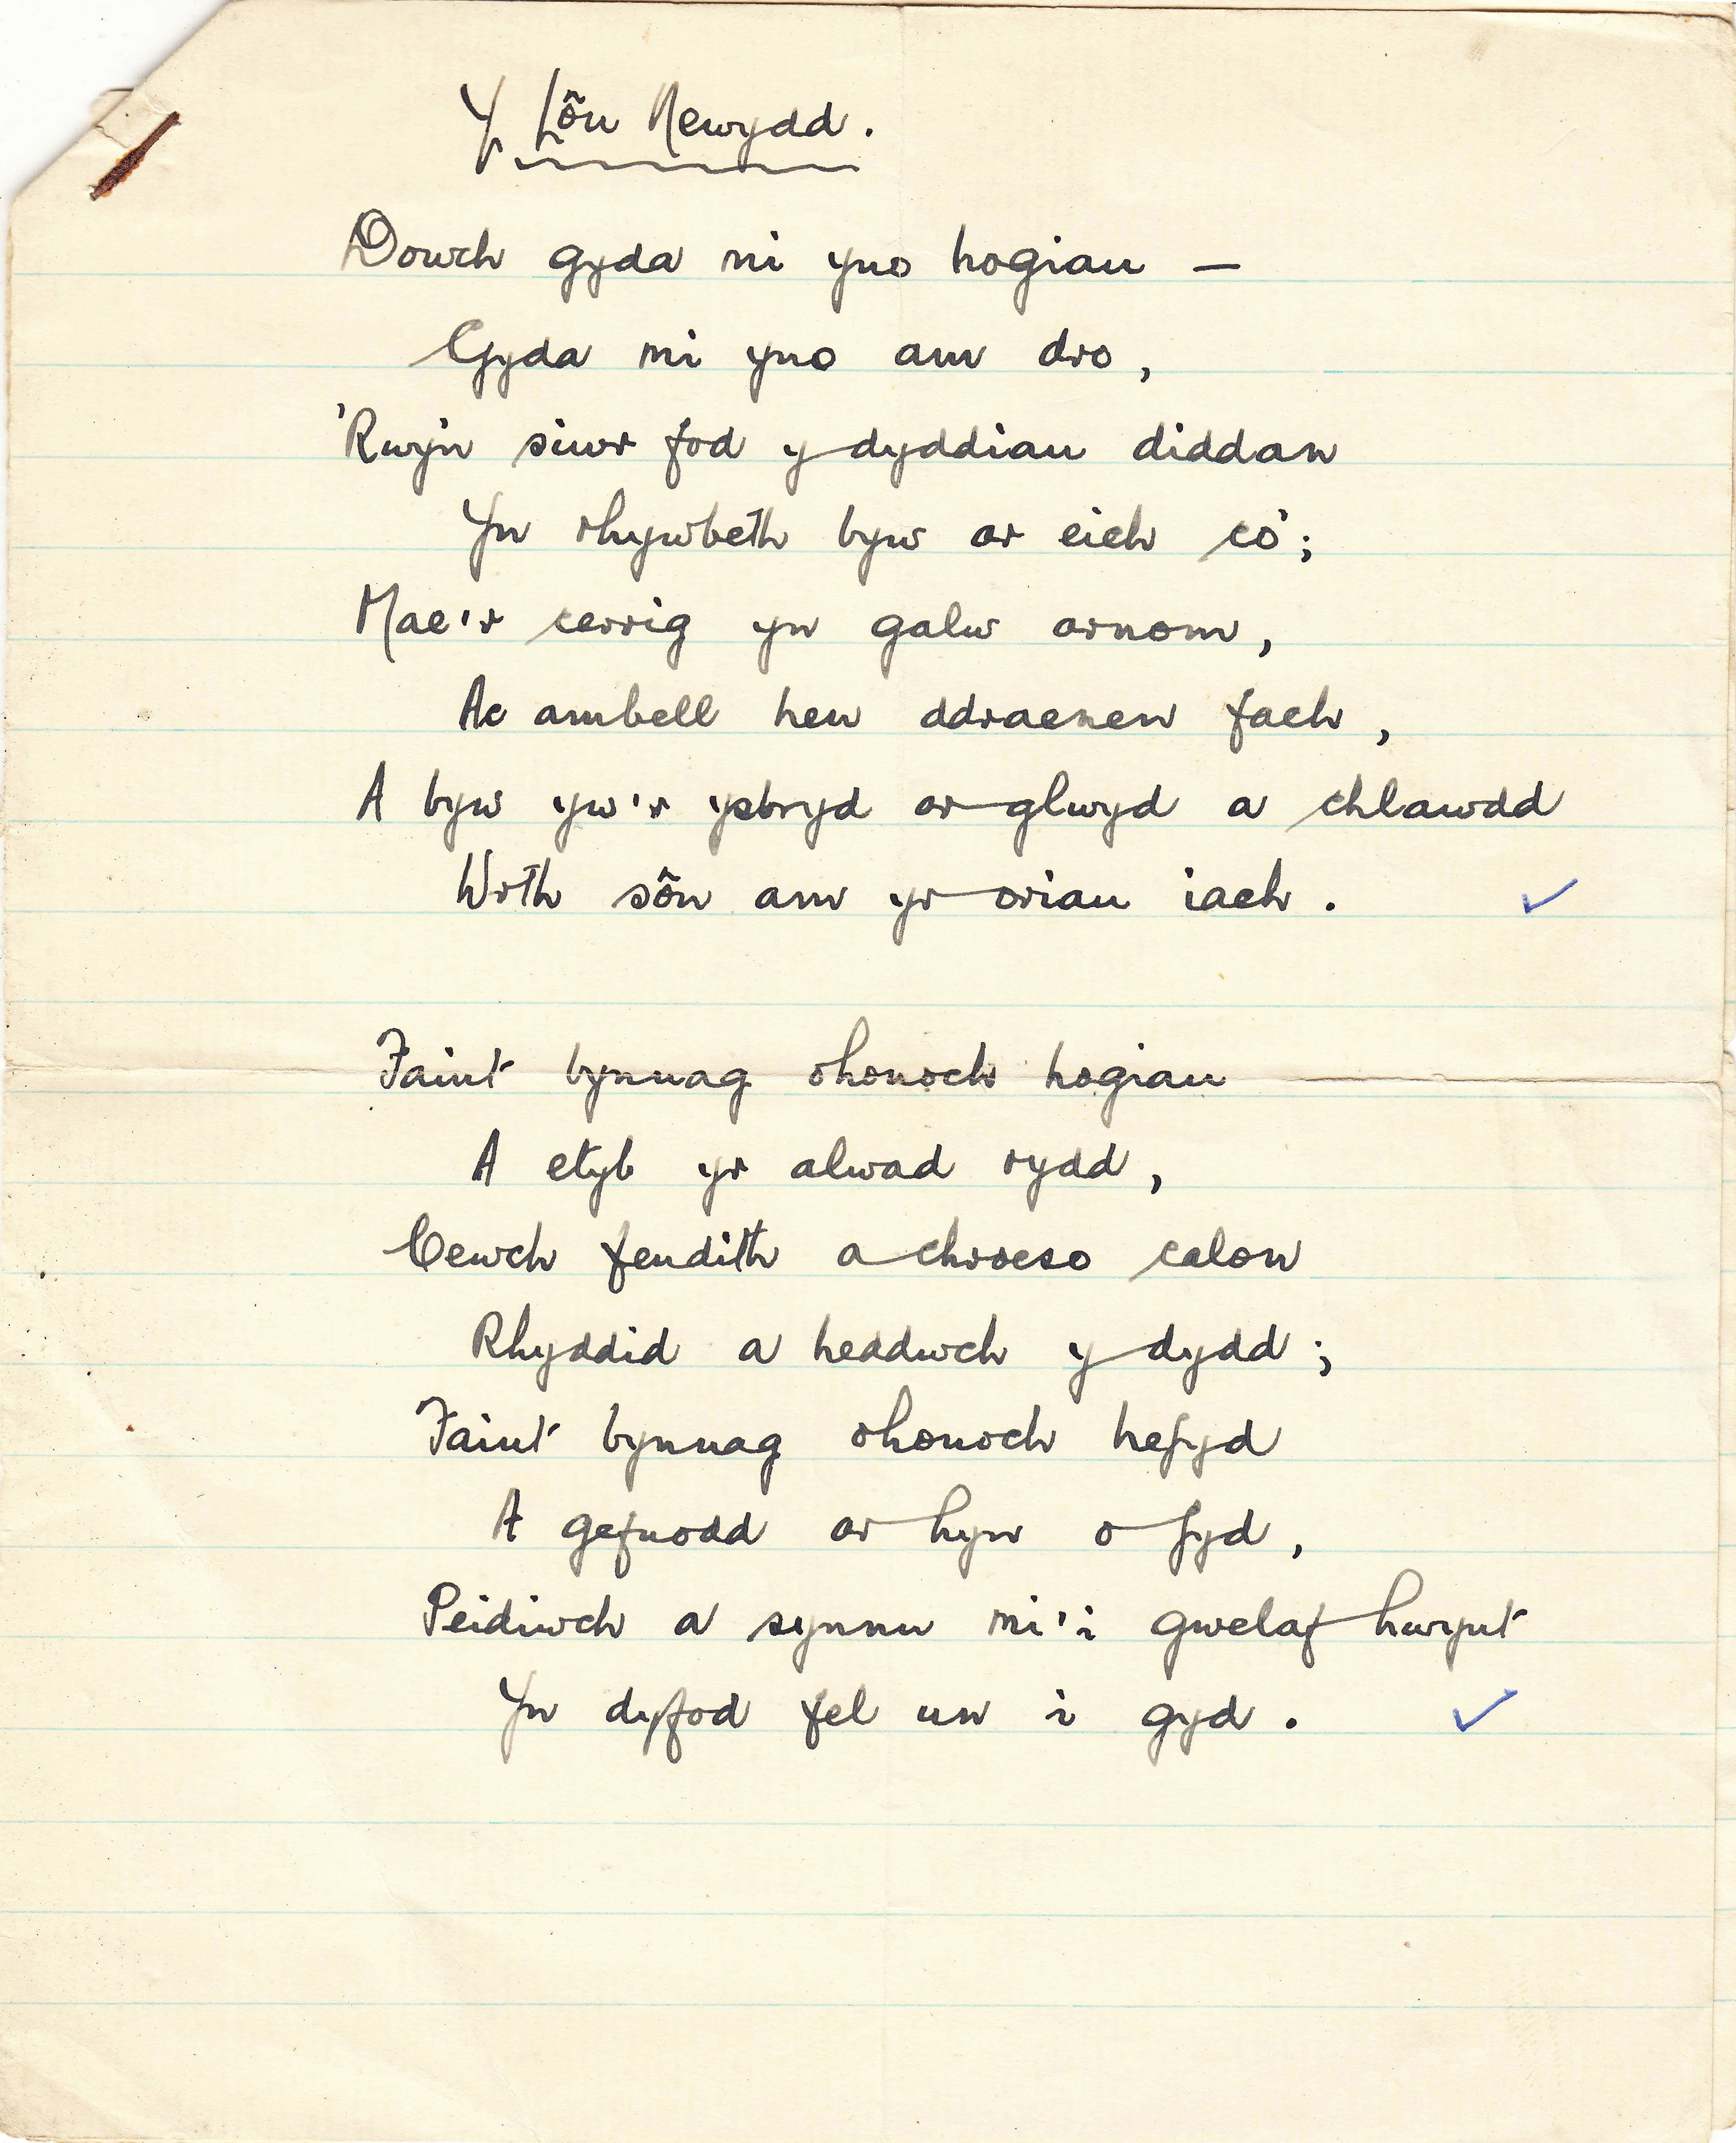 Y Lôn Newydd.
Dowch gyda ni yno hogiau —
Gyda mi yno am dro,
'Rwy'n siwr fod y dyddiau diddan
Yn rhywbeth byw ar eich co';
Mae'r cerrig yn galw arnom,
Ac ambell hen ddraenen fach,
A byw yw'r ysbryd ar glwyd a chlawdd
Wrth sôn am yr oriau iach.
Faint bynnag ohonoch hogiau
A etyb yr alwad rydd,
Cewch fendith a chroeso calon
Rhyddid a heddwch y dydd;
Faint bynnag ohonoch hefyd
A gefnodd ar hyn o fyd,
Peidiwch a synnu mi'i gwelaf hwynt
Yn dyfod fel un i gyd.